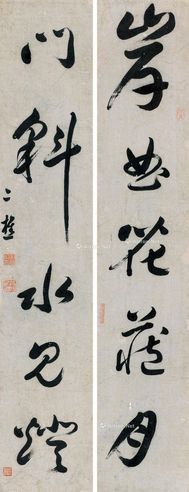 岸曲花藏月
門斜水見燈
二樵